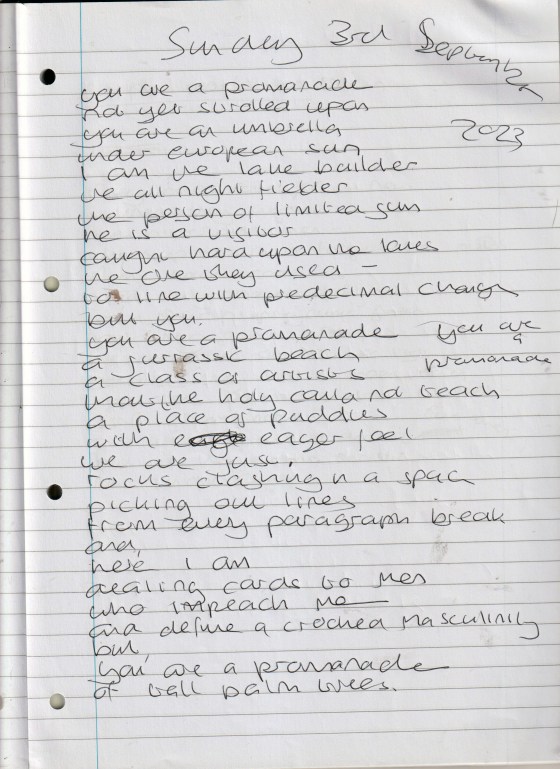 Sunday 3rd September
2023
you are a promanade
not yet strolled upon
you are an umbrella
under european sun
I am the lake builder
the all night fielder
the person of limited sum
he is a visitor
caught hard upon the
the one they used -
to line with predecimal change
but you.
you are a promanade
you are
a
promanade
a jurrassic beach
a class of artists
that the holy could not teach
a place of puddles
with eager feet
we are just,
rocks clashing in a space
picking out lines
from every paragraph break
and,
here I am
dealing cards to men
who impeach me
and define a crooked masculinity
but,
you are a promanade
of tall palm trees.